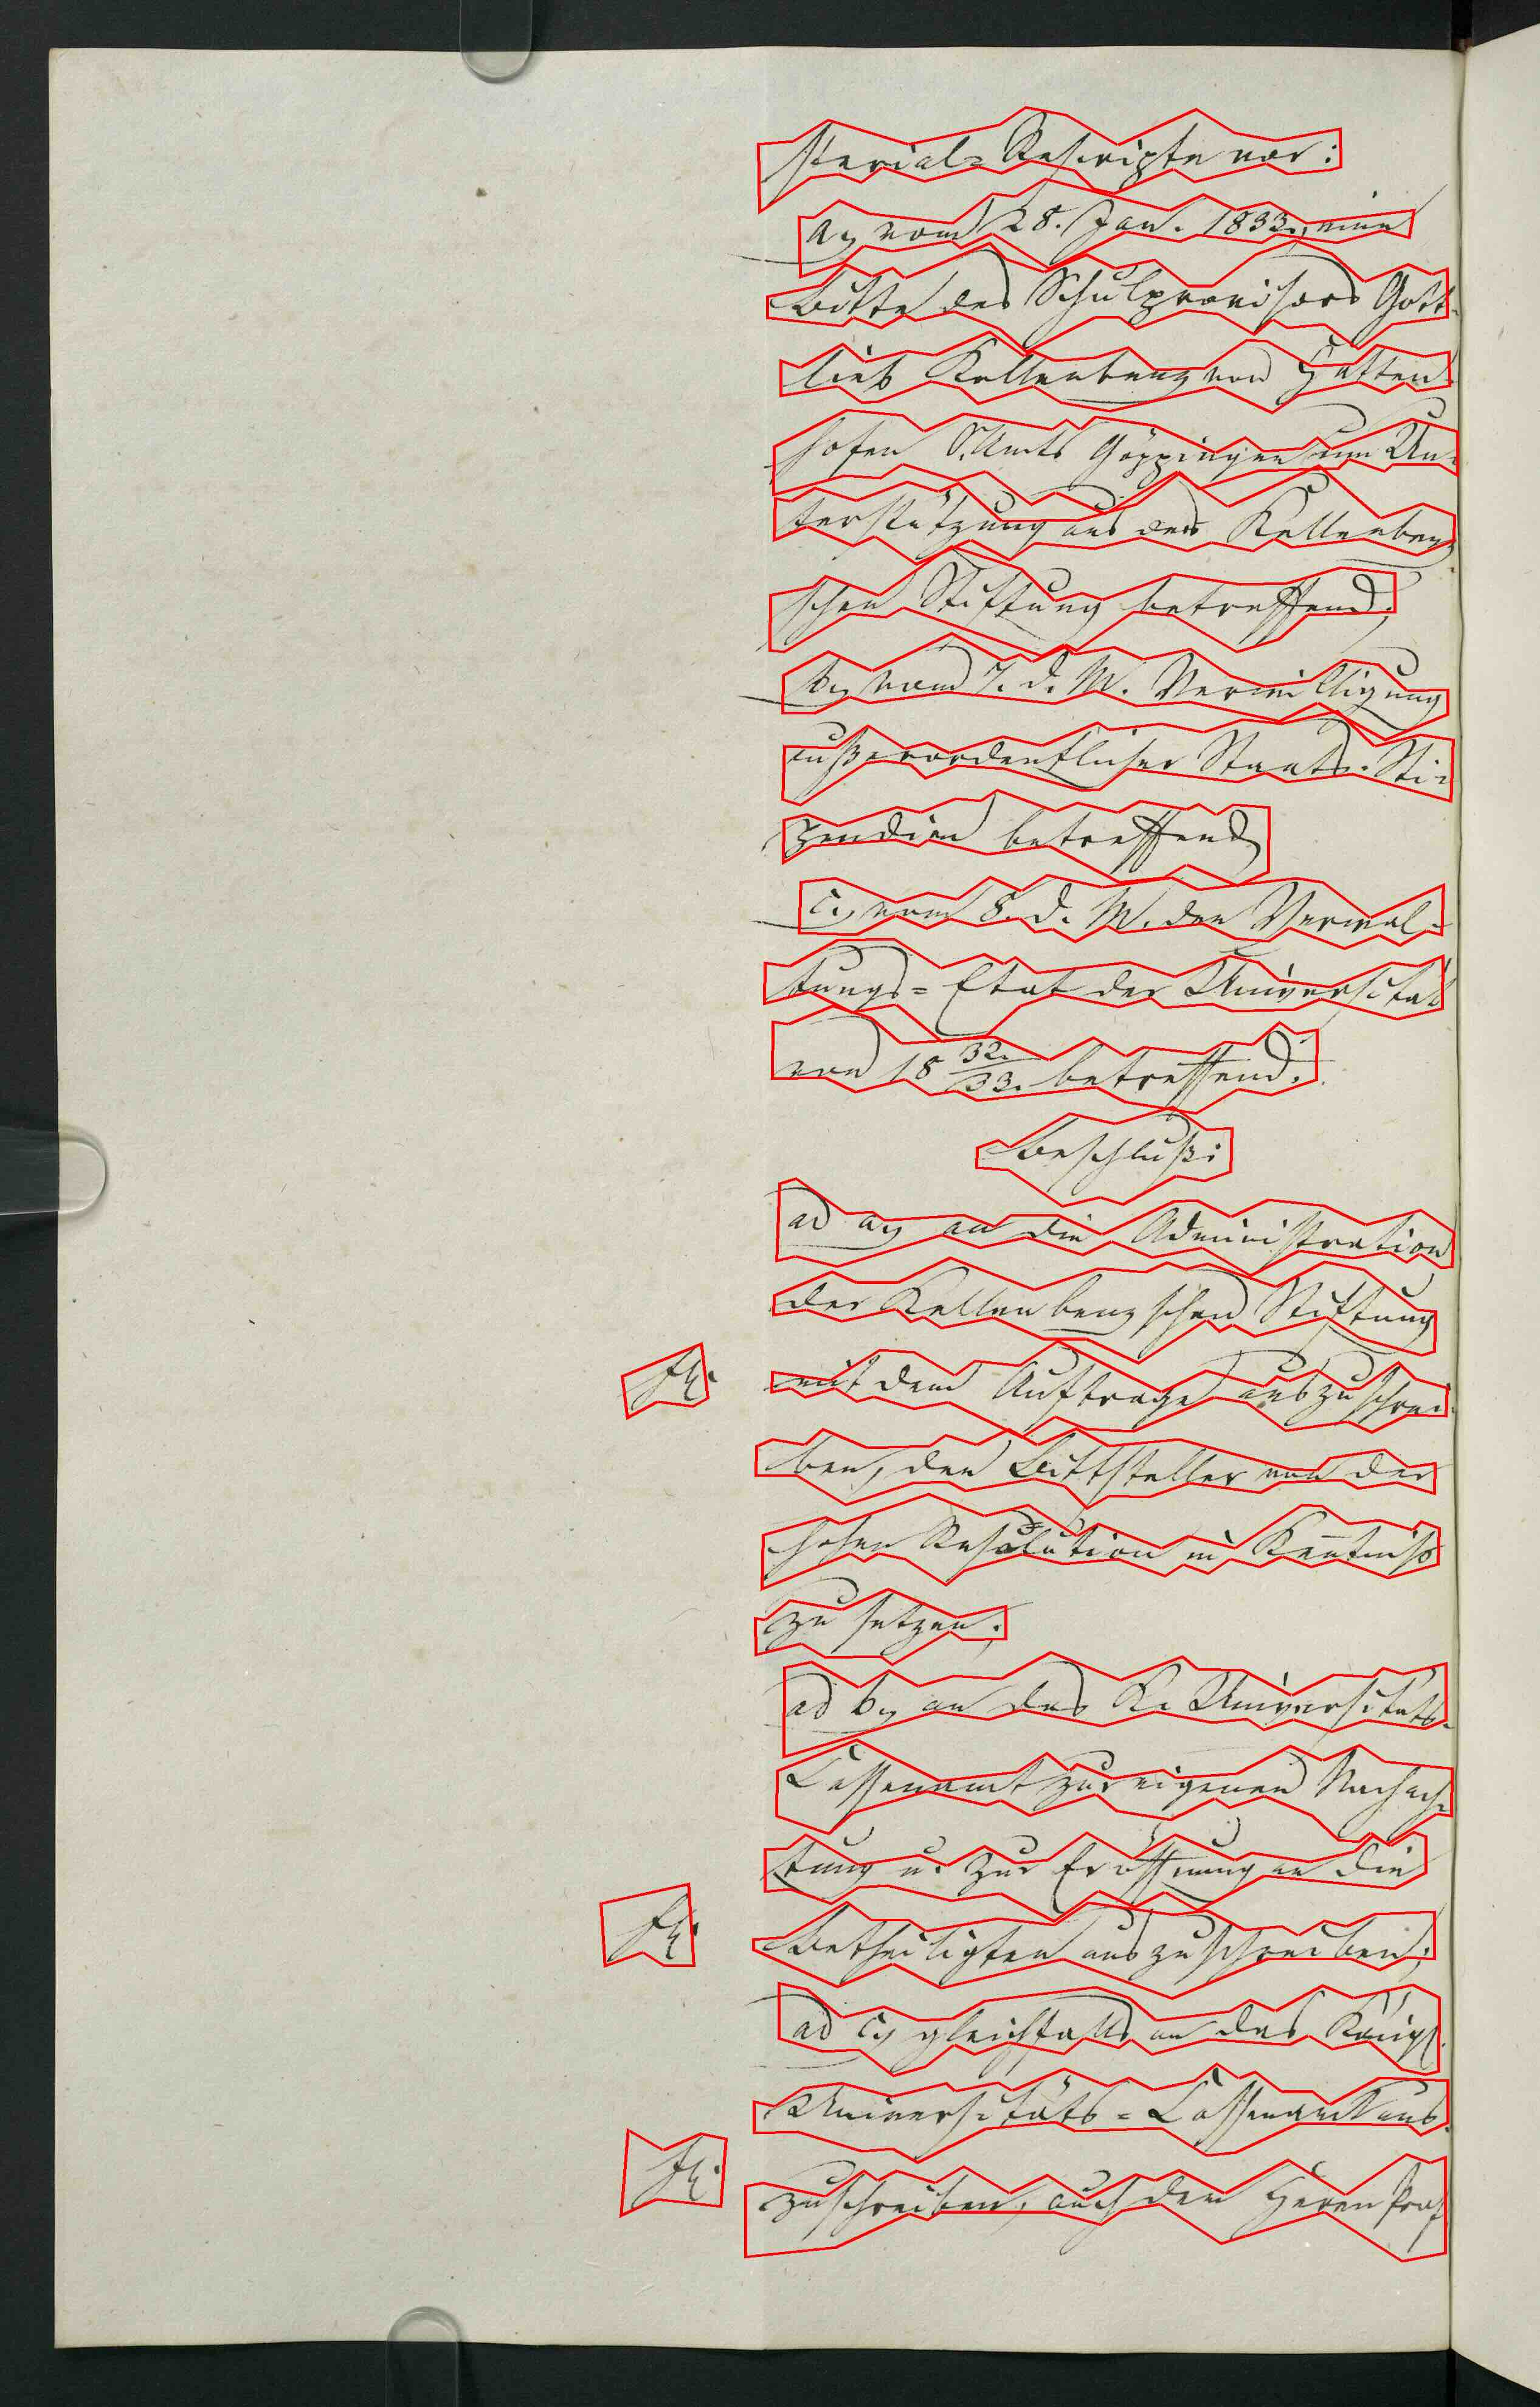 sterial-Rescripte vor:
a, vom 28. Jan. 1833., eine
Bitte des Schulprovisors Gott-
lieb Kellenbenz von Hatten-
hofen O.Amts Göppingen um Un-
terstützung aus der Kellenbenz
schen Stiftung betreffend;
b, vom 7. d. M. Verwilligung
außerordentlicher Staats-Sti-
pendien betreffend,
c, vom 8. d. M. den Verwal-
tungs-Etat der Universität
von 18 32./33. betreffend.
Beschluß:
ad a, an die Administration
der Kellenbenzschen Stiftung
mit dem Auftrage auszuschrei-
ben, den Bittsteller von der
hohen Resolution in Kenntniß
zu setzen.
ad b, an das K. Universitäts-
Cassenamt zur eigenen Nachach-
tung u. zur Eröffnung an die
Betheiligten auszuschreiben;
ad c, gleichfalls an das Königl.
Universitäts-Cassenamt aus-
zuschreiben, auch dem Herrn Prof